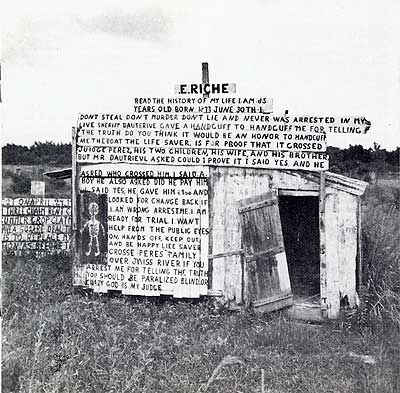 E. RICHE
READ THE HISTORY OF MY LIFE I AM 65
YEARS OLD BORN 1877 JUNE 30TH I
DONT STEAL DONT MURDER DONT LIE AND NEVER WAS ARRESTED IN MY
LIVE SHERIFF DAUTERIVE GAVE A HANDCUFF TO HANDCUFF ME FOR TELLING
THE TRUTH DO YOU THINK IT WOULD BE AN HONOR TO HANDCUFF
ME THE BOAT THE LIFE SAVER IS FOR PROOF THAT IT CROSSED
JUDGE PEREZ, HIS TWO CHILDREN, HIS WIFE, AND HIS BROTHER
BUT MR DAUTRIEVL ASKED COULD I PROVE IT I SAID YES AND HE
ASKED WHO CROSSED HIM I SAID A
BOY HE ALSO ASKED DID HE PAY HIM
I SAID YES HE GAVE HIM AND
LOOKED FOR CHANGE BACK IF
I AM WRONG ARREST ME I AM
READY FOR TRIAL I WANT
HELP FROM THE PUBLIC EYES
ON, HANDS OFF, KEEP OUT,
AND BE HAPPY LIFE SAVER
CROSSE PERES FAMILY
OVER MISS RIVER IF YOU
ARREST ME FOR TELLING THE TRUTH
YOU SHOULD BE PARALIZED BLIND OR
CRAZY GOD IS MY JUDGE